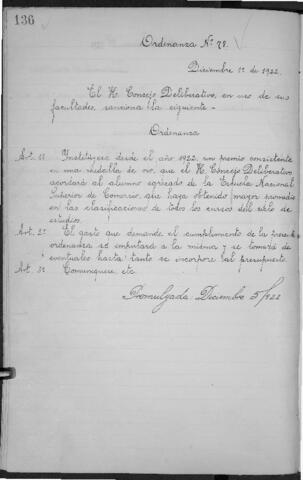 136
Ordenanza Nº 78.
Diciembre 1º de 1922.
El H. Consejo Deliberativo, en uso de sus
facultades, sanciona la siguiente -
Ordenanza
Art. 1º Institúyese desde el año 1922 un premio consistente
en una medalla de oro, que el H. Consejo Deliberativo
acordará al alumno egresado de la Escuela Nacional
Superior de Comercio, que haya obtenido mayor promedio
en las clasificaciones de todos los cursos del ciclo de
estudios.
Art. 2º El gasto que demande el cumplimiento de la presente
ordenanza se imputará a la misma y se tomará de
eventuales hasta tanto se incorpore al presupuesto.
Art. 3º Comuníquese, etc.
Promulgada: Diciembre 5/922